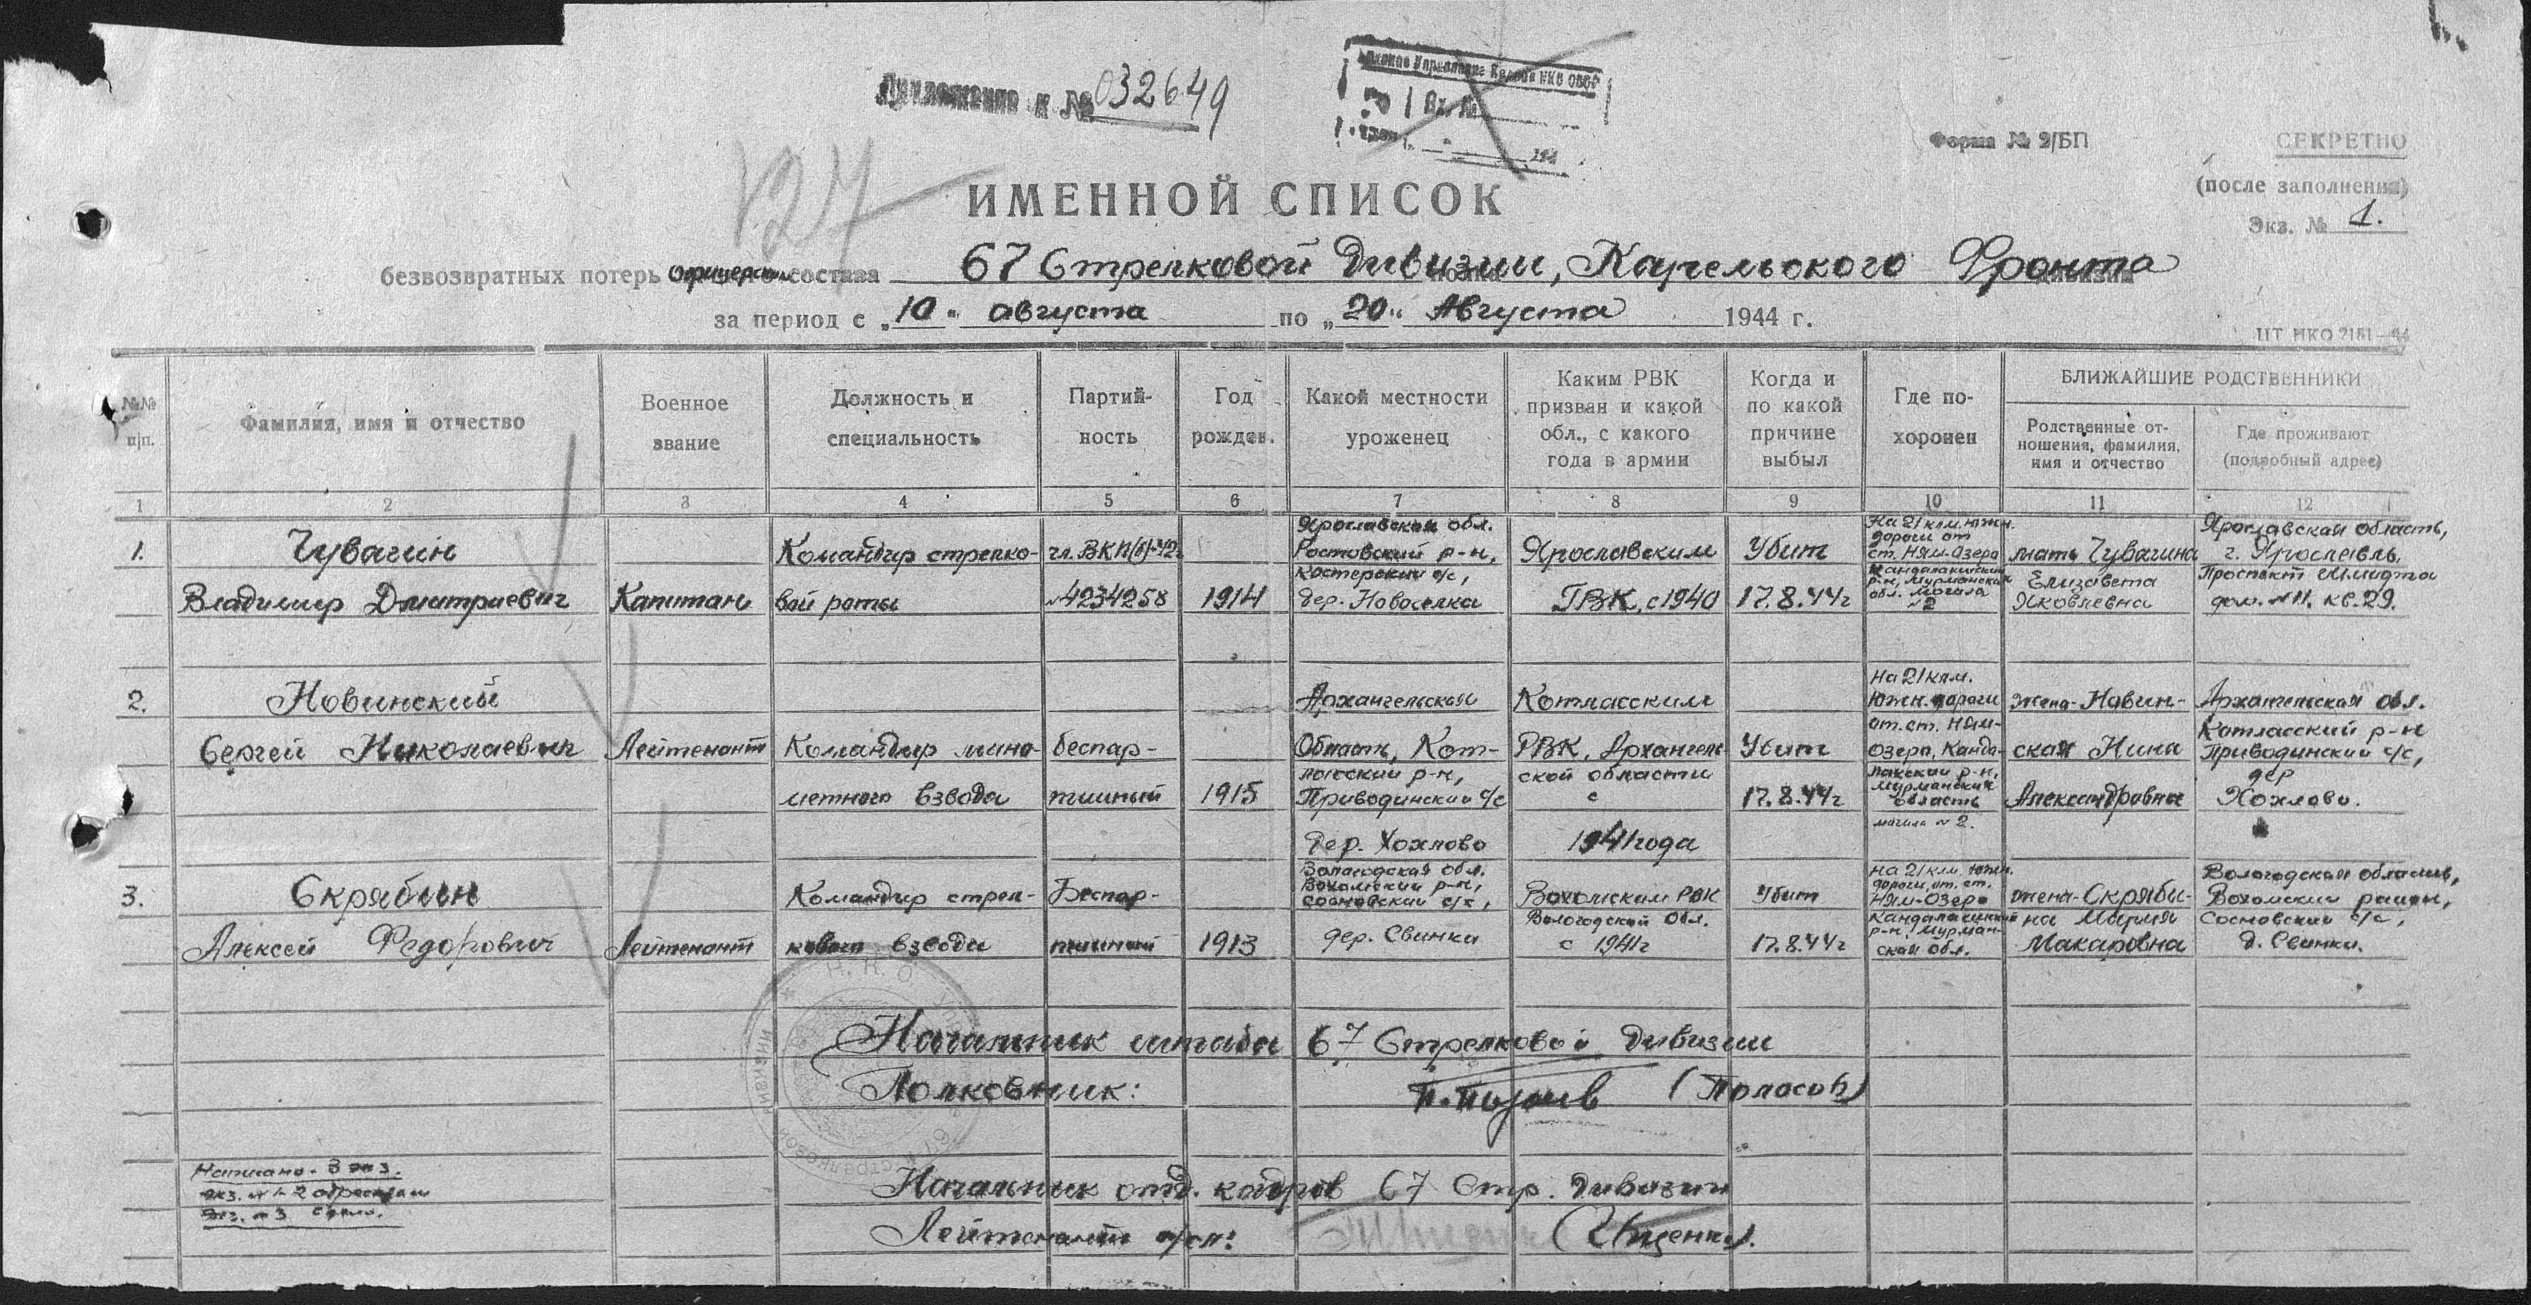 Приложение к № 032649
Вх. №
194
v.27
Форма № 2/БП
СЕКРЕТНО
(после заполнения)
Экз. № 1.
ИМЕННОЙ СПИСОК
безвозвратных потерь офицерского состава 67 Стрелковой Дивизии, Карельского Фронта
за период с „10" августа по „20" Августа 1944 г.
ЦТ НКО 2181—44
№№ п/п.
Фамилия, имя и отчество
Военное звание
Должность и специальность
Партийность
Год рожден.
Какой местности уроженец
Каким РВК призван и какой обл., с какого года в армии
Когда и по какой причине выбыл
Где похоронен
БЛИЖАЙШИЕ РОДСТВЕННИКИ
Родственные отношения, фамилия, имя и отчество
Где проживают (подробный адрес)
1 2 3 4 5 6 7 8 9 10 11 12
1.
Чувагин
Владимир Дмитриевич
Капитан
Командир стрелко-
вой роты
чл. ВКП(б)-42г
№4234258
1914
Ярославская обл.
Ростовский р-н,
дер. Новоселка
Ярославским
ГВК, с 1940
Убит
17.8.44г
На 21 клм. южн.
дороги от
ст. Ням-Озеро
Кандалакшский
р-н, Мурманская
обл. могила
№2
мать Чувагина
Елизавета
Яковлевна
Ярославская область,
г. Ярославль,
Проспект Шмидта
дом. №11. кв. 29.
2.
Новинский
Сергей Николаевич
Лейтенант
Командир мино-
метного взвода
беспар-
тийный
1915
Архангельская
Область, Кот-
ласский р-н,
Приводинский с/с
дер. Хохлово
Котласским
РВК, Архангель-
ской области
с
1941 года
Убит
17.8.44г
На 21 клм.
Южн. дороги
от ст. Ням-
Озеро, Канда-
лакский р-н,
Мурманская
область
могила №2.
жена-Новин-
ская Нина
Александровна
Архангельская обл.
Котласский р-н
Приводинский с/с,
дер
Хохлово.
3.
Скрябин
Алексей Федорович
Лейтенант
Командир стрел-
кового взвода
Беспар-
тийный
1913
Вологодская обл.
Вохомский р-н,
Сосновский с/с,
дер. Свинки
Вохомским РВК
Вологодской Обл.
с 1941г
Убит
17.8.44г
На 21 клм. южн.
дороги, от. ст.
Ням-Озеро
Кандалакшский
р-н, Мурман-
ская обл.
жена-Скряби-
на Мария
Макаровна
Вологодская область,
Вохомский район,
Сосновский с/с,
д. Свинки.
Начальник штаба 67 Стрелковой Дивизии
Полковник:
Начальник отд. кадров 67 Стр. Дивизии
Лейтенант (Ищенко).
Написано-3 экз.
экз. №1-2 адресатам
Экз. №3 в дело.